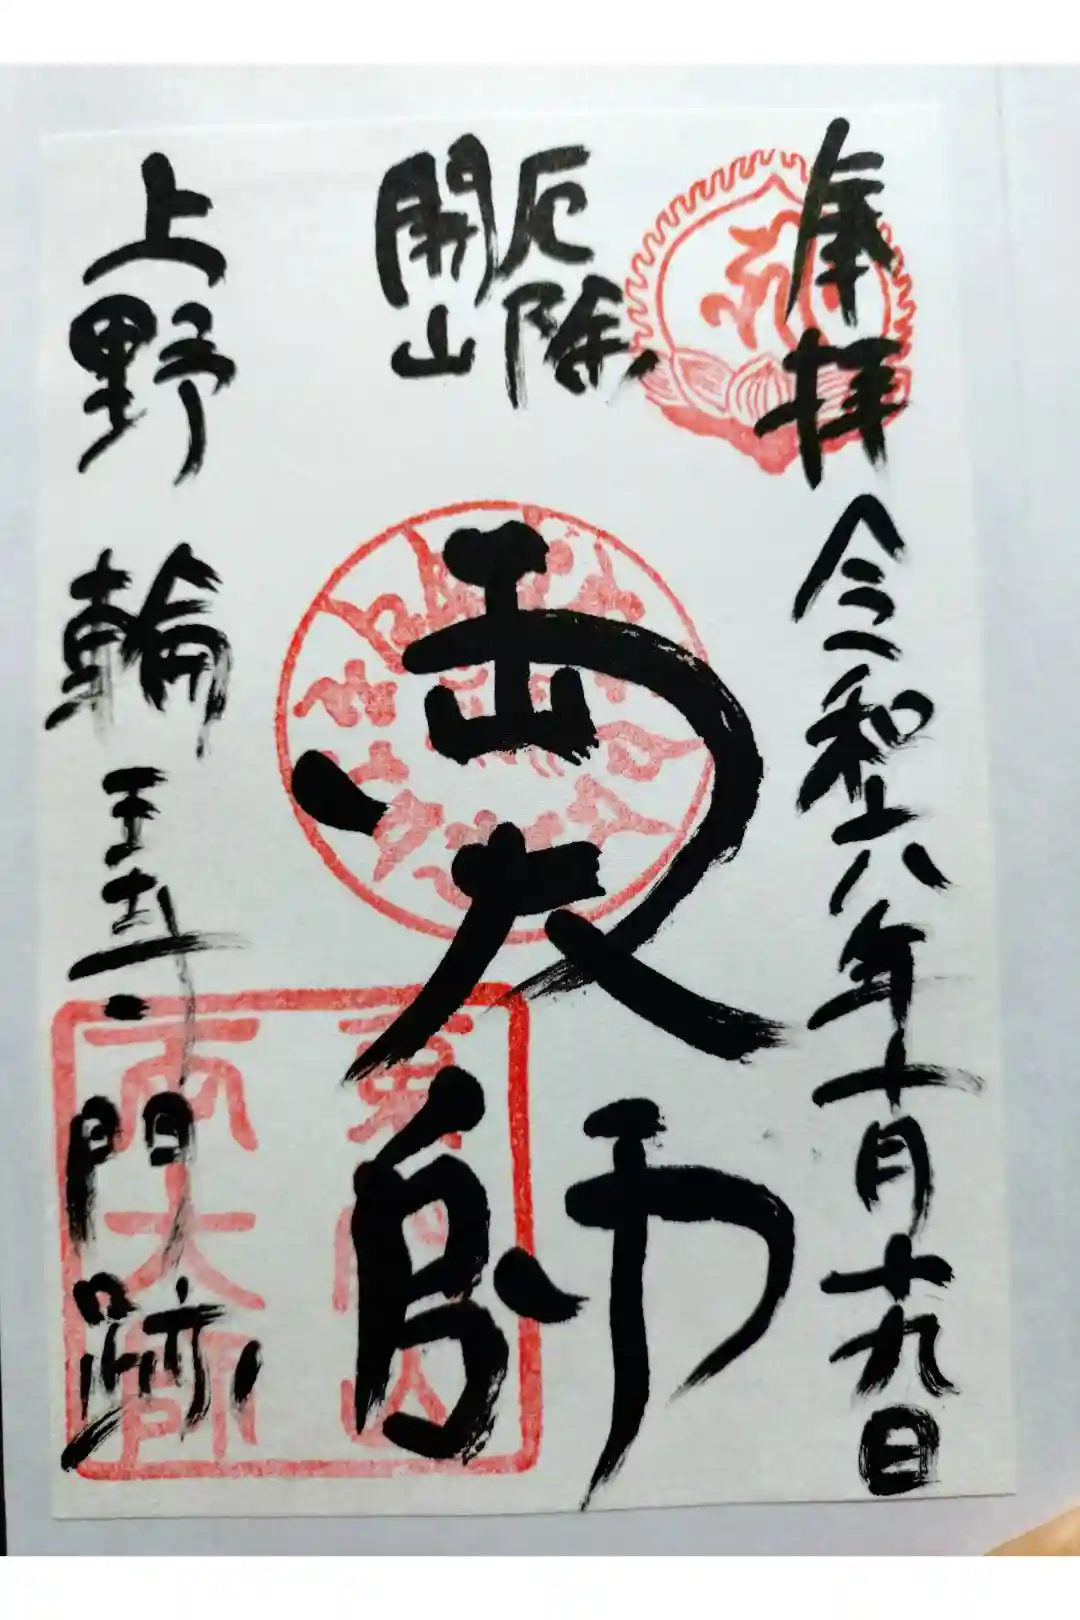 奉拝 令和六年十月十九日
厄除
開山
両大師
上野 輪王寺門跡
両大師